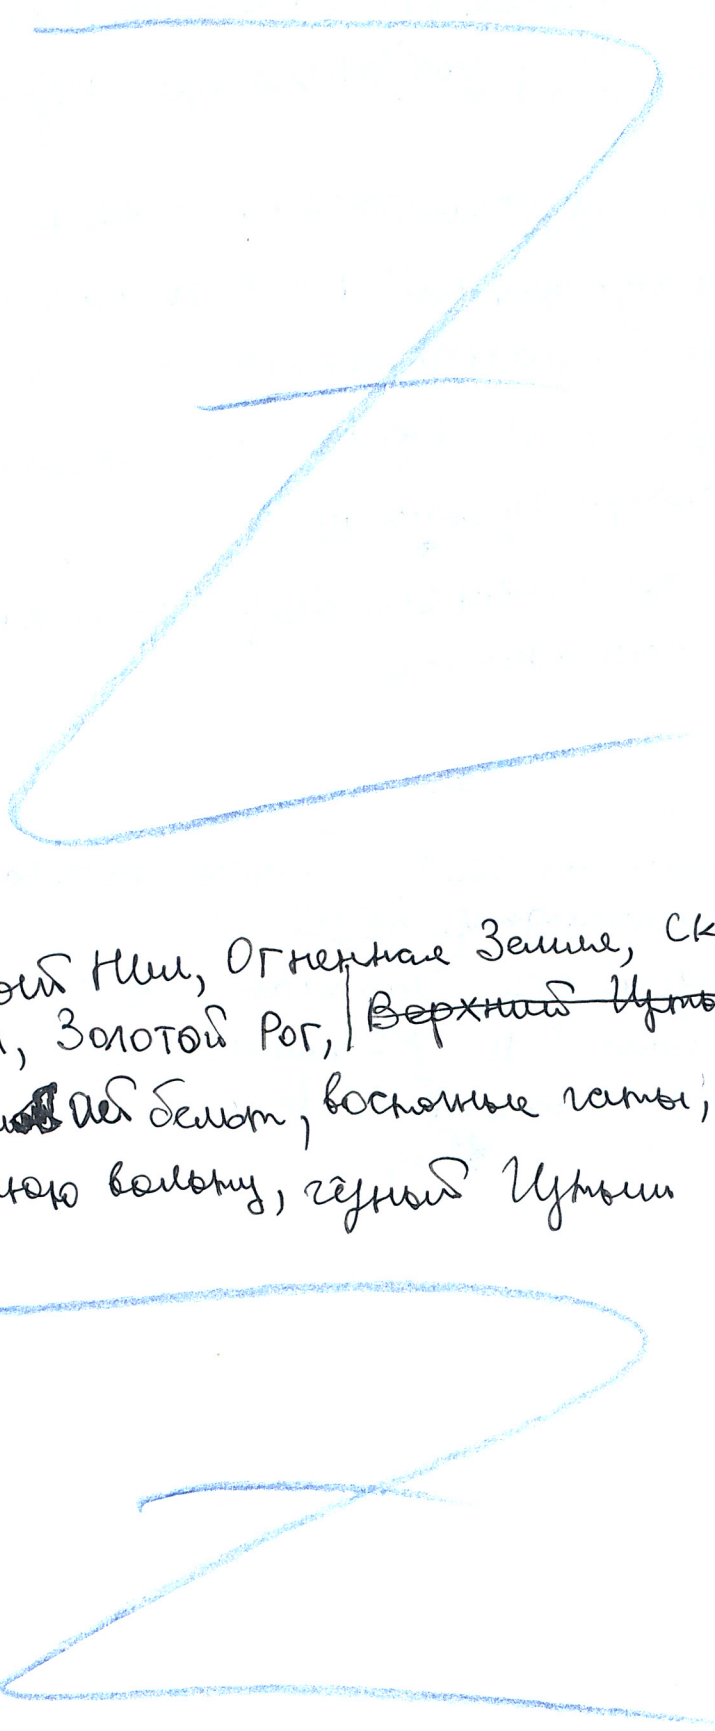 Нил, Огненная Земля, Ск
, Золотой Рог, Верхний Ирты
бельт, восточные гаты,
нюю вольту, чёрный Иртыш